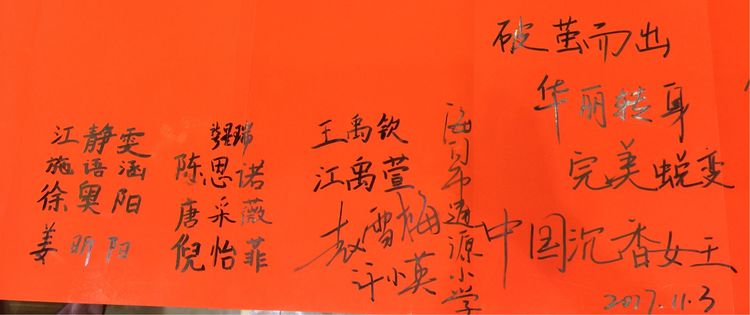 江静雯
施语涵
徐奥阳
姜明阳
陈思诺
唐采薇
倪怡菲
王禹钦
江禹萱
袁雪梅
许小英
海口市通源小学
破茧而出
华丽转身
完美蜕变
中国沉香女王
2017.11.3